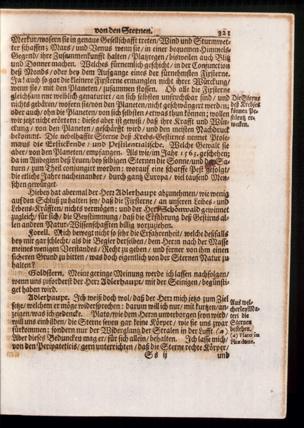 von den Sternen. 321
Merkur/wofern sie in genaue Gesellschafft treten/Wind und Sturmwet-
ter schaffen; Mars/ und Venus wenn sie/ in einer bequemen Himmels-
Gegend/ ihre Zusammenkunfft halten/ Platzregen/ bisweilen auch Blitz
und Donner machen. Welches fürnemlich geschicht/ in der Conjunction
deß Monds/ oder bey dem Aufgange eines der fürnehmsten Fixsterne.
Ja! auch so gar die kleinern Fixsterne ermanglen nicht ihrer Würckung/
wenn sie/ mit den Planeten/ zusammen stossen. Ob alle die Fixsterne
gleichsam weiblich genaturet/ an sich selbsten unfruchtbar sind/ und
nichts gebären/ wofern sie/von den Planeten/nicht geschwängert werden;
oder auch/ ohn die Planeten/ von sich selbsten etwas thun können; wollen
wir jetzt nicht erörtern: dieses ist gewiß/ daß ihre Krafft und Würc-
kung/ von den Planeten/ geschärfft wird/ und den meisten Nachdruck
bekommt. Die nebelhaffte Sterne des Krebs-Gestirnes nennet Ptole-
maeus die Ersteckende/ und Pestilentzialische. Welche Gewalt sie
aber/ von den Planeten/ empfangen. Als wie/im Jahr 1563. geschehen;
da im Andeginn deß Leuen/bey selbigen Sternen die Sonne/und
zum Theil conjungirt worden: worauf eine scharffe Pest erfolgt
die etliche Jahre nacheinander/ durch gantz Europa/ viel tausend Men-
schen weggeraubt.
Hiebey hat abermal der Herr Adlerhaupt abzunehmen/wie wenig
auf den Schluß zu halten sey/ daß die Fixsterne/ an unseren Leibes- und
Lebens-Kräfften/ nichts vermögen; und der Herr Schönwald gewinnet
zugleich/ für sich/ die Beystimmung/ daß die Erfahrung deß Gestirns al-
len andern Natur-Wissenschafften billig vorzuziehen.
Forell. Mich bewegt nicht so sehr die Erfahrenheit/ welche desselben
bey mir gar schlecht/ als die Begier derselben/ dem Herrn nach der Masse
meines wenigen Verstandes/ Recht zu geben/ und ferner von ihm einen
sicheren Grund zu bitten/ was doch eigentlich von der Sternen Natur zu
halten?
Goldstern. Meine geringe Meinung werde ich lassen nachfolgen/
wenn uns zuforderst der Herr Adlerhaupt Seinige/ desjenigen/ beglünsti-
get haben wird.
Adlerhaupt. Ich weiß doch wol/ daß der Herr mich jetzo zum Ziel
setze/ welchem er möge widersprochen: darum will ich nur/ mit kurtzem/ an-
zeigen/was ich gedencke. Plato/ wie dem Herrn unverborgen seyn wird/
will uns einbilden/ die Sterne seyen gar keine Körper/ wie sie uns zwar
fürkommen; sondern nur der Widerglantz der Stralen in der Lufft. (a)
Aber dieses Bedunckens mag er/ für sich allein/ behalten. Ich lasse mich/
von den Peripateticis/ gern unterrichten/ daß die Sterne rechte Körper/
S s ij und